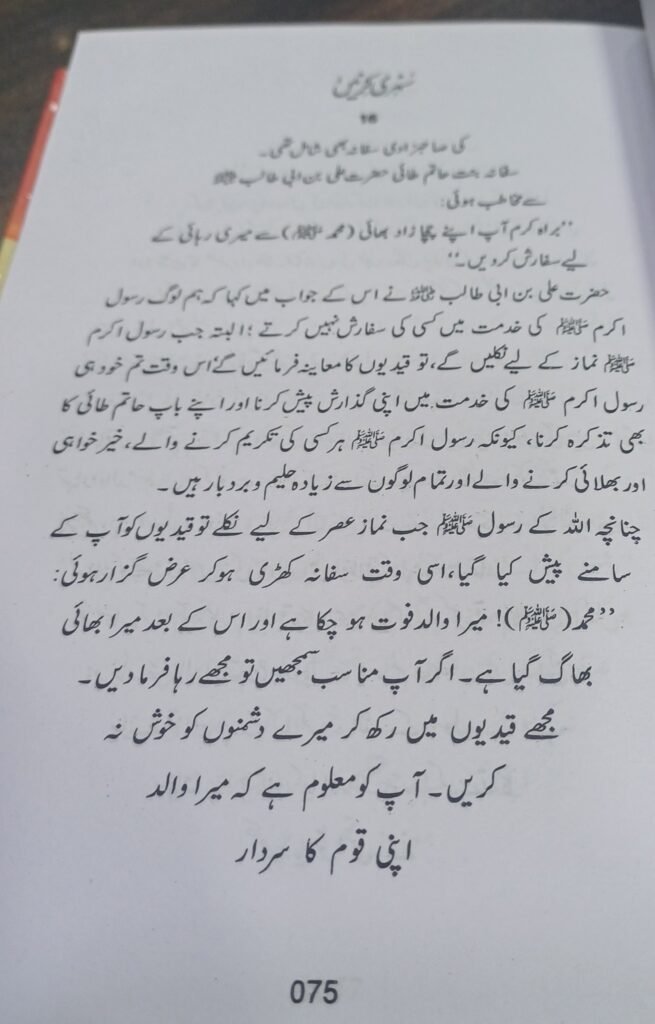 سنہری کرنیں
16
کی صاحبزادی سفانہ بھی شامل تھی۔
سفانہ بنت حاتم طائی حضرت علی بن ابی طالب
سے مخاطب ہوئی:
”براہ کرم آپ اپنے چچا زاد بھائی (محمد ﷺ) سے میری رہائی کے
لیے سفارش کر دیں۔“
حضرت علی بن ابی طالب نے اس کے جواب میں کہا کہ ہم لوگ رسول
اکرم ﷺ کی خدمت میں کسی کی سفارش نہیں کرتے؛ البتہ جب رسول اکرم
ﷺ نماز کے لیے نکلیں گے، تو قیدیوں کا معاینہ فرمائیں گے‘ اس وقت تم خود ہی
رسول اکرم ﷺ کی خدمت میں اپنی گذارش پیش کرنا اور اپنے باپ حاتم طائی کا
بھی تذکرہ کرنا، کیونکہ رسول اکرم ﷺ ہر کسی کی تکریم کرنے والے، خیر خواہی
اور بھلائی کرنے والے اور تمام لوگوں سے زیادہ حلیم و بردبار ہیں۔
چنانچہ اللہ کے رسول ﷺ جب نماز عصر کے لیے نکلے تو قیدیوں کو آپ کے
سامنے پیش کیا گیا، اسی وقت سفانہ کھڑی ہو کر عرض گزار ہوئی:
”محمد (ﷺ)! میرا والد فوت ہو چکا ہے اور اس کے بعد میرا بھائی
بھاگ گیا ہے۔ اگر آپ مناسب سمجھیں تو مجھے رہا فرما دیں۔
مجھے قیدیوں میں رکھ کر میرے دشمنوں کو خوش نہ
کریں۔ آپ کو معلوم ہے کہ میرا والد
اپنی قوم کا سردار
075